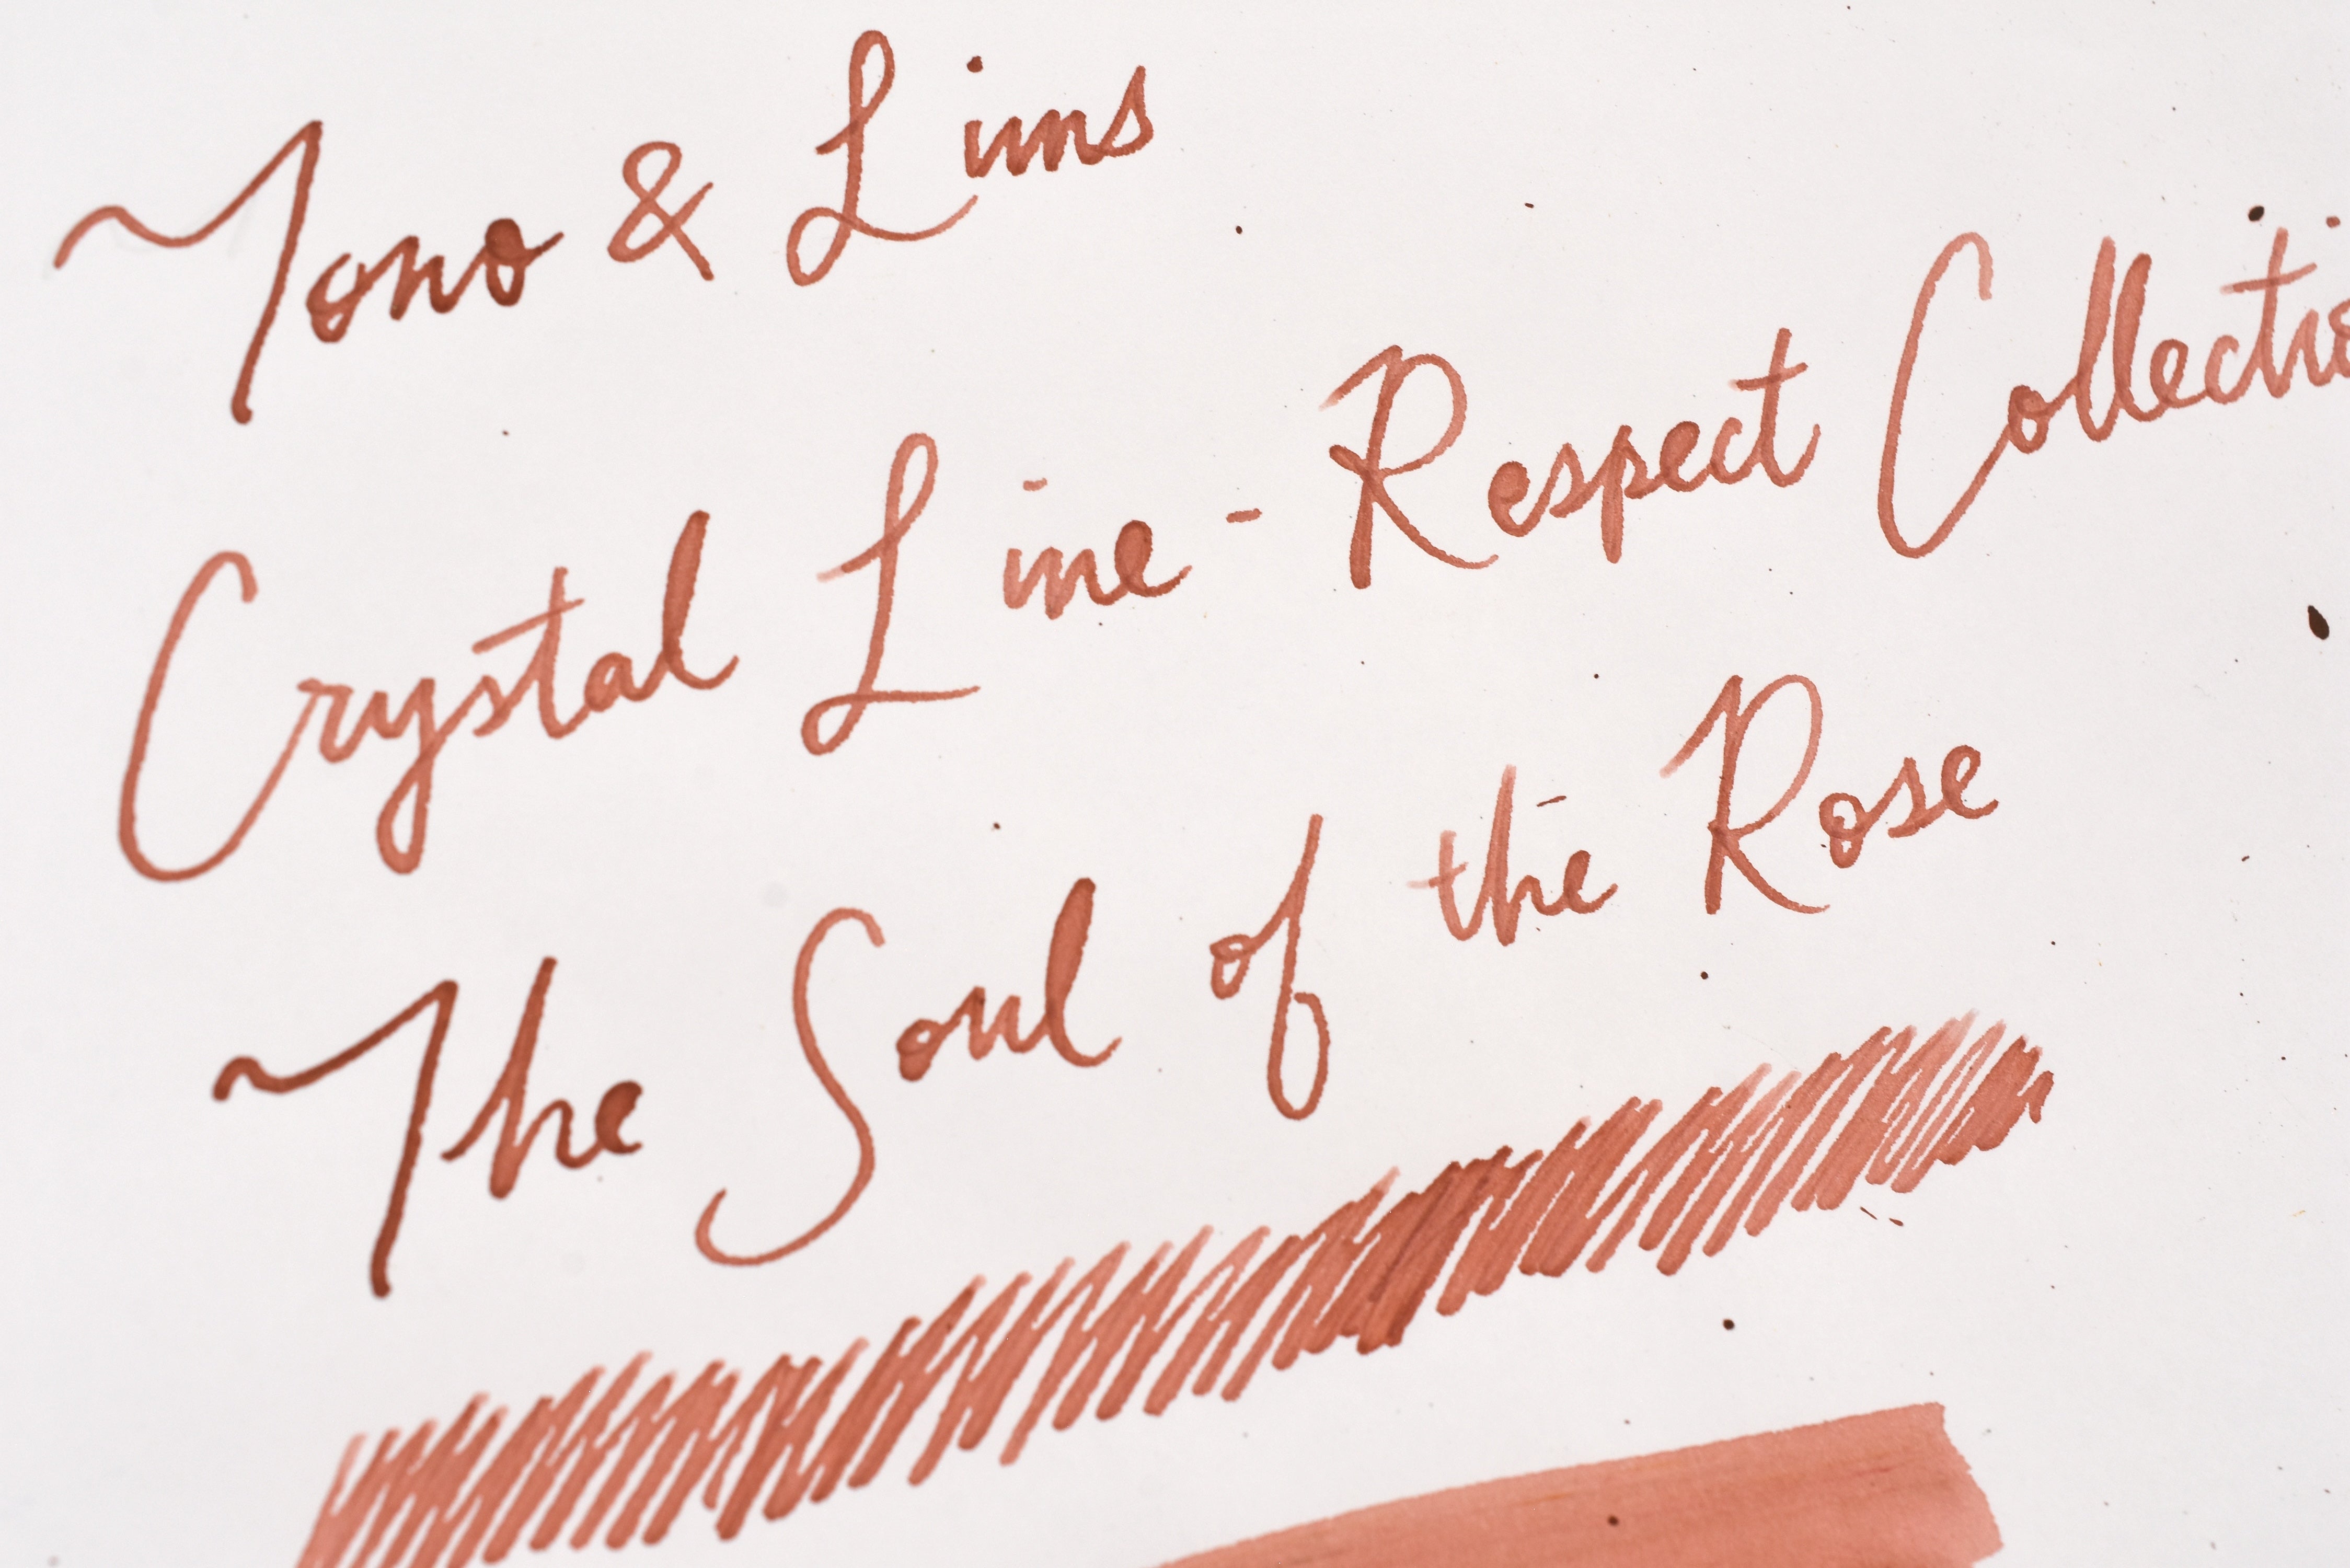 Tono & Lims
Crystal Line - Respect Collectio
The Soul of the Rose